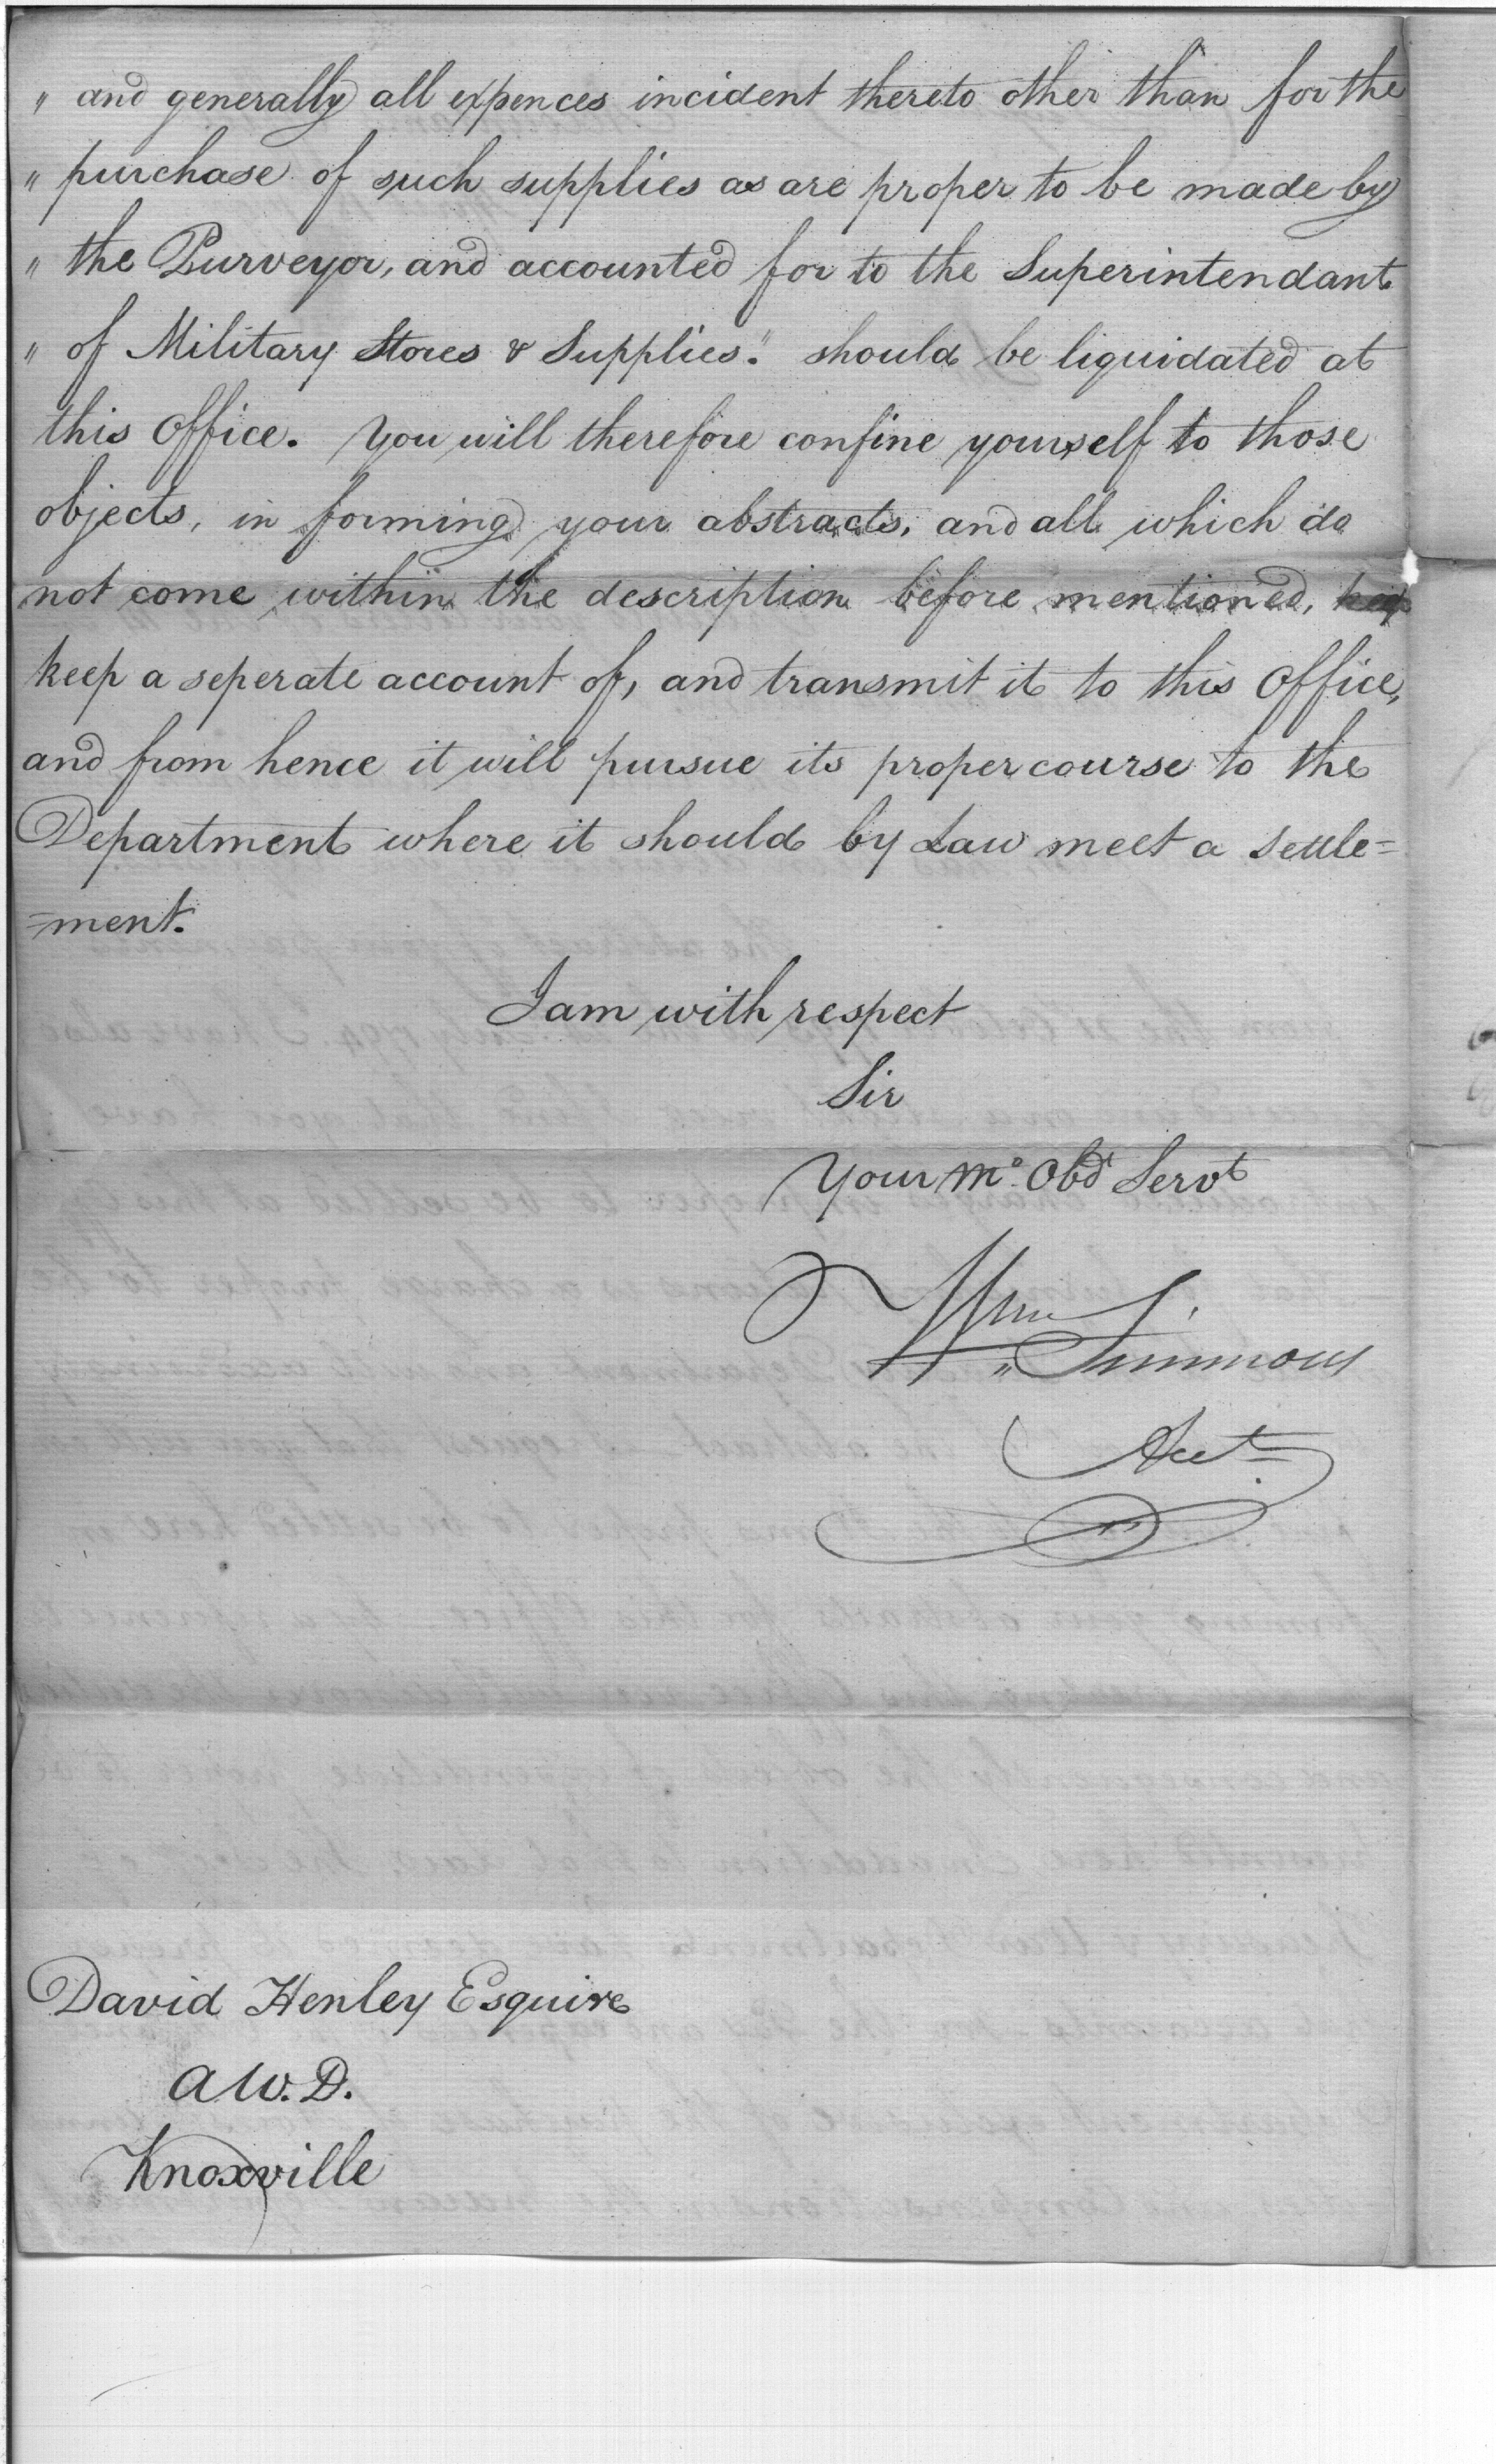 " and generally all expences incident thereto other than for the
" purchase of such supplies as are proper to be made by
" the Purveyor, and accounted for to the Superintendant
" of Military Stores & Supplies." should be liquidated at
this Office. You will therefore confine yourself to those
objects, in forming your abstracts, and all which do
not come within the description before mentioned,
keep a seperate account of, and transmit it to this Office,
and from hence it will pursue its proper course to the
Department where it should by Law meet a settle=
=ment.
I am with respect
Sir
Your Mo. Obdt Servt
Wm Simmons
Acct
David Henley Esquire
A W. D.
Knoxville